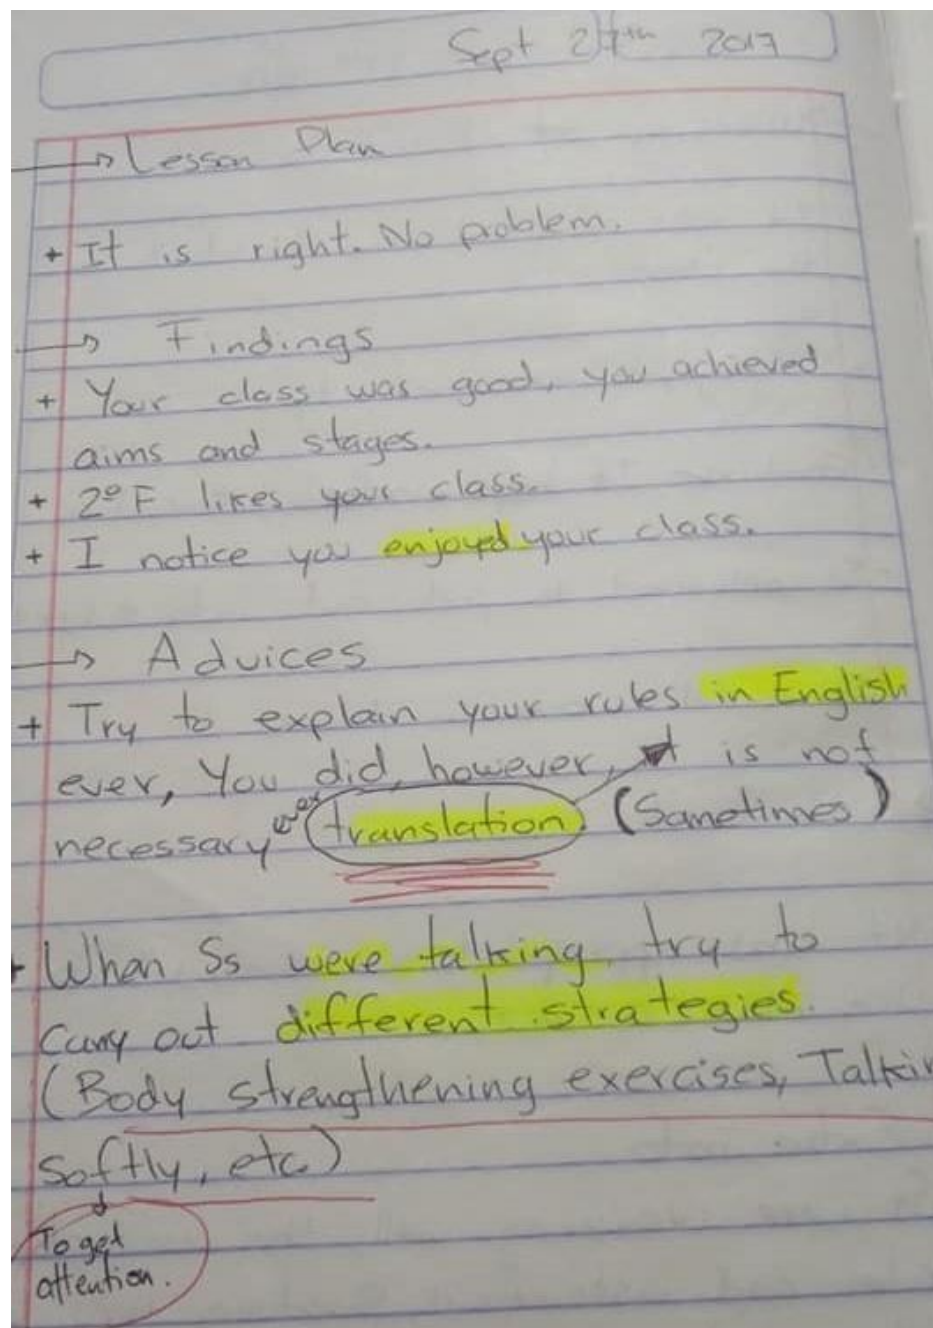 Sept 27th 2017
→ Lesson Plan
+ It is right. No problem.
→ Findings
+ Your class was good, you achieved
aims and stages.
+ 2º F likes your class.
+ I notice you enjoyed your class.
→ Advices
+ Try to explain your rules in English
ever, You did, however, it is not
necessary translation (Sometimes)
+ When Ss were talking try to
Carry out different strategies.
(Body strengthening exercises, Talkin
softly, etc)
To get
attention.